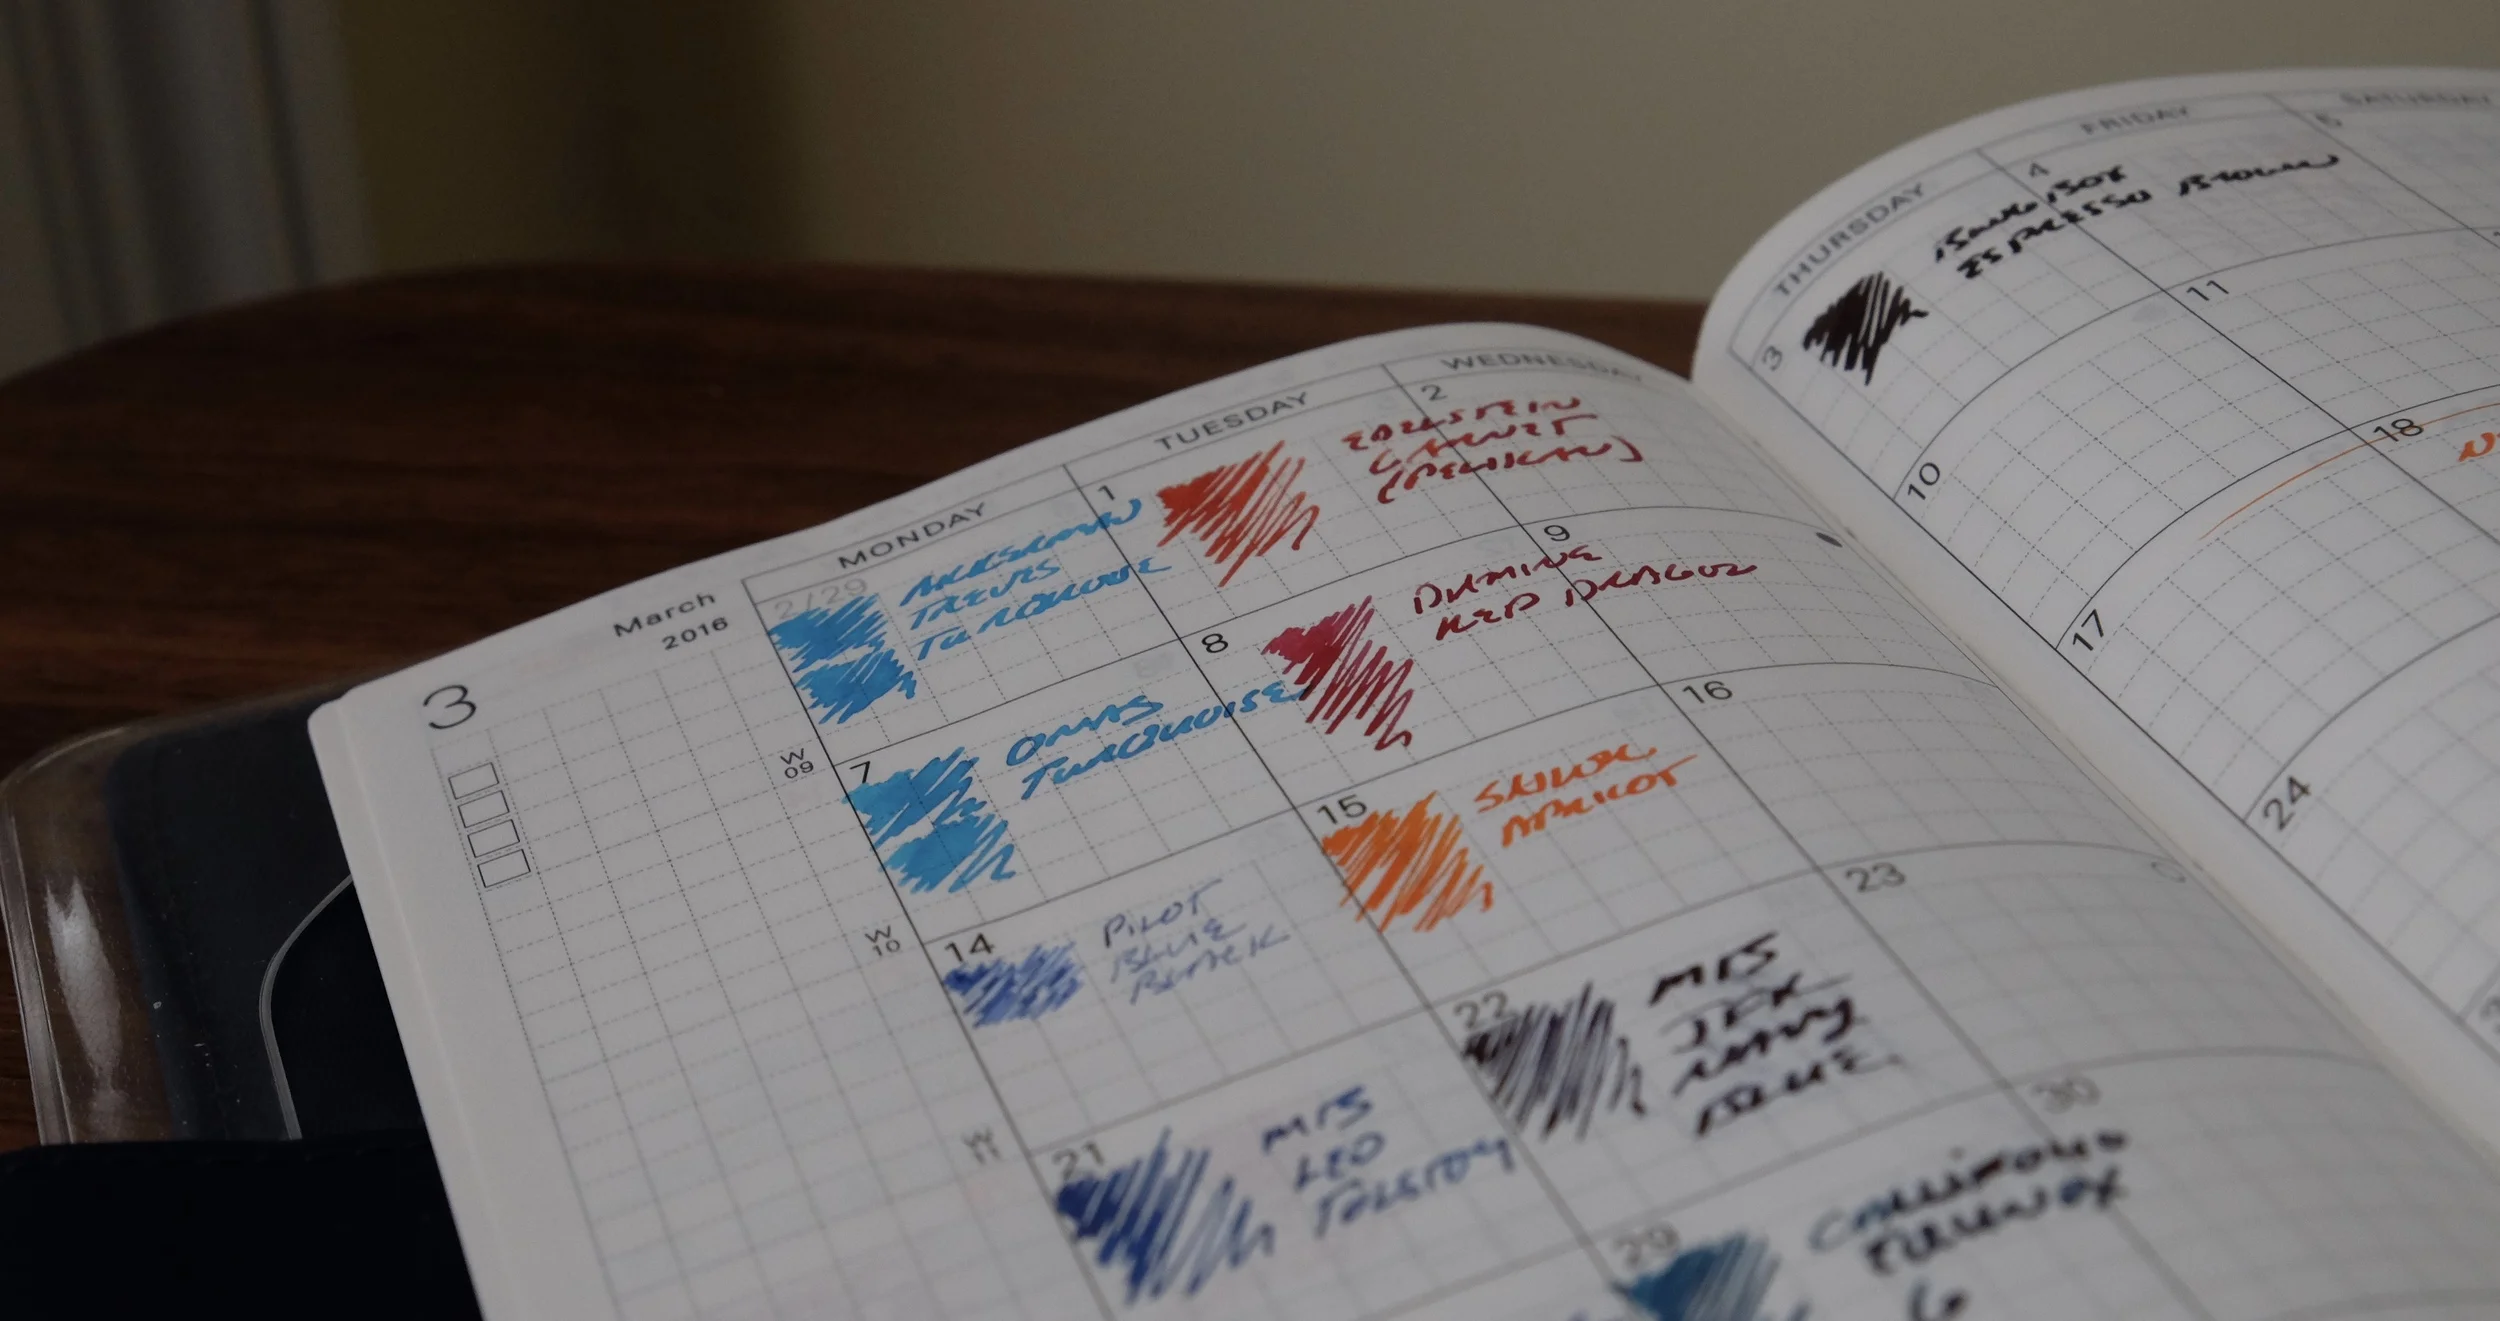 March
2016
3
MONDAY
TUESDAY
WEDNESDAY
THURSDAY
FRIDAY
SATURDAY
2/29
AKKERMAN
TREVES
TURQUOISE
1
EDELSTEIN
GARNET
(PELIKAN)
2
3
BUNGUBOX
ESPRESSO BROWN
4
5
W
09
7
OMAS
TURQUOISE
8
DIAMINE
RED DRAGON
9
10
11
W
10
14
PILOT
BLUE
BLACK
15
SAILOR
APRICOT
16
17
18
W
11
21
MB
LEO
TOLSTOY
22
MB
JFK
NAVY
BLUE
23
24
29
30